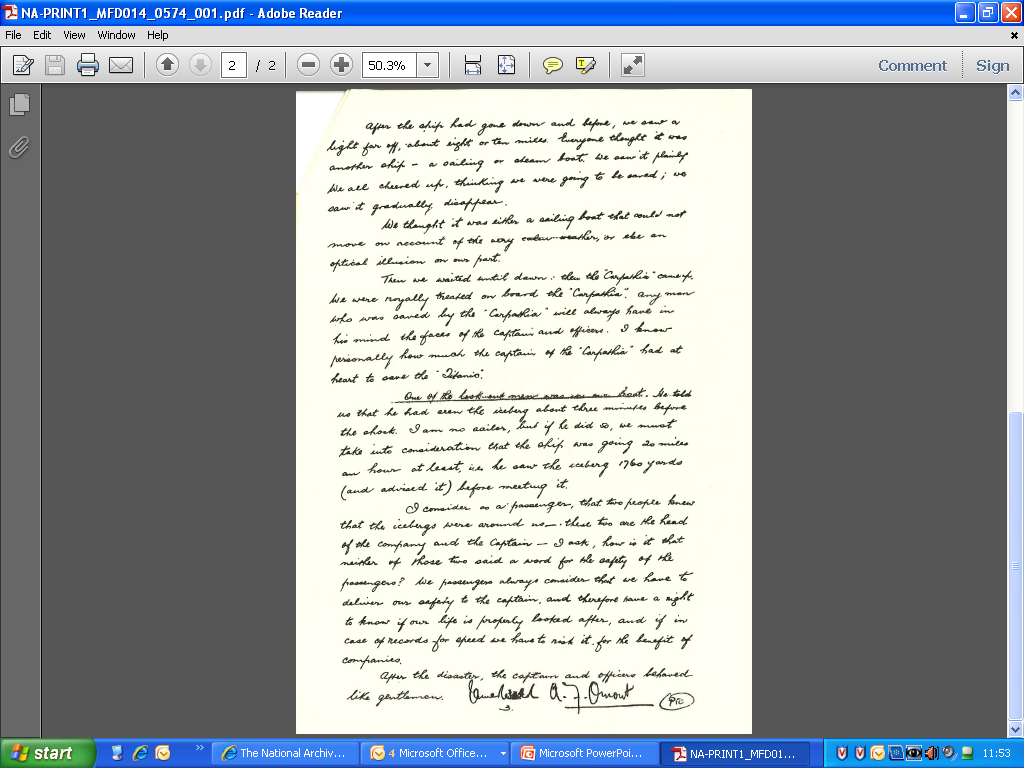 NA-PRINT1_MFD014_0574_001.pdf - Adobe Reader
File Edit View Window Help
2 / 2 50.3% Comment Sign
After the ship had gone down and before, we saw a
light far off, about eight or ten miles. Everyone thought it was
another ship - a sailing or steam boat. We saw it plainly
We all cheered up, thinking we were going to be saved; we
saw it gradually disappear.
We thought it was either a sailing boat that could not
move on account of the very calm weather, or else an
optical illusion on our part.
Then we waited until dawn: then the "Carpathia" came up.
We were royally treated on board the "Carpathia". Any man
who was saved by the "Carpathia" will always have in
his mind the faces of the Captain and officers. I know
personally how much the captain of the "Carpathia" had at
heart to save the "Titanic".
One of the look-out men was in our boat. He told
us that he had seen the iceberg about three minutes before
the shock. I am no sailor, but if he did so, we must
take into consideration that the ship was going 20 miles
an hour at least, i.e. he saw the iceberg 1760 yards
(and advised it) before meeting it.
I consider as a passenger, that two people knew
that the icebergs were around us - these two are the head
of the company and the Captain - I ask, how is it that
neither of those two said a word for the safety of the
passengers? We passengers always consider that we have to
deliver our safety to the captain, and therefore have a right
to know if our life is properly looked after, and if in
case of records for speed we have to risk it, for the benefit of
companies.
After the disaster, the captain and officers behaved
like gentleman. A. F. Omont
3.
PTO
start The National Archiv... 4 Microsoft Office... Microsoft PowerPoi... NA-PRINT1_MFD01... 11:53